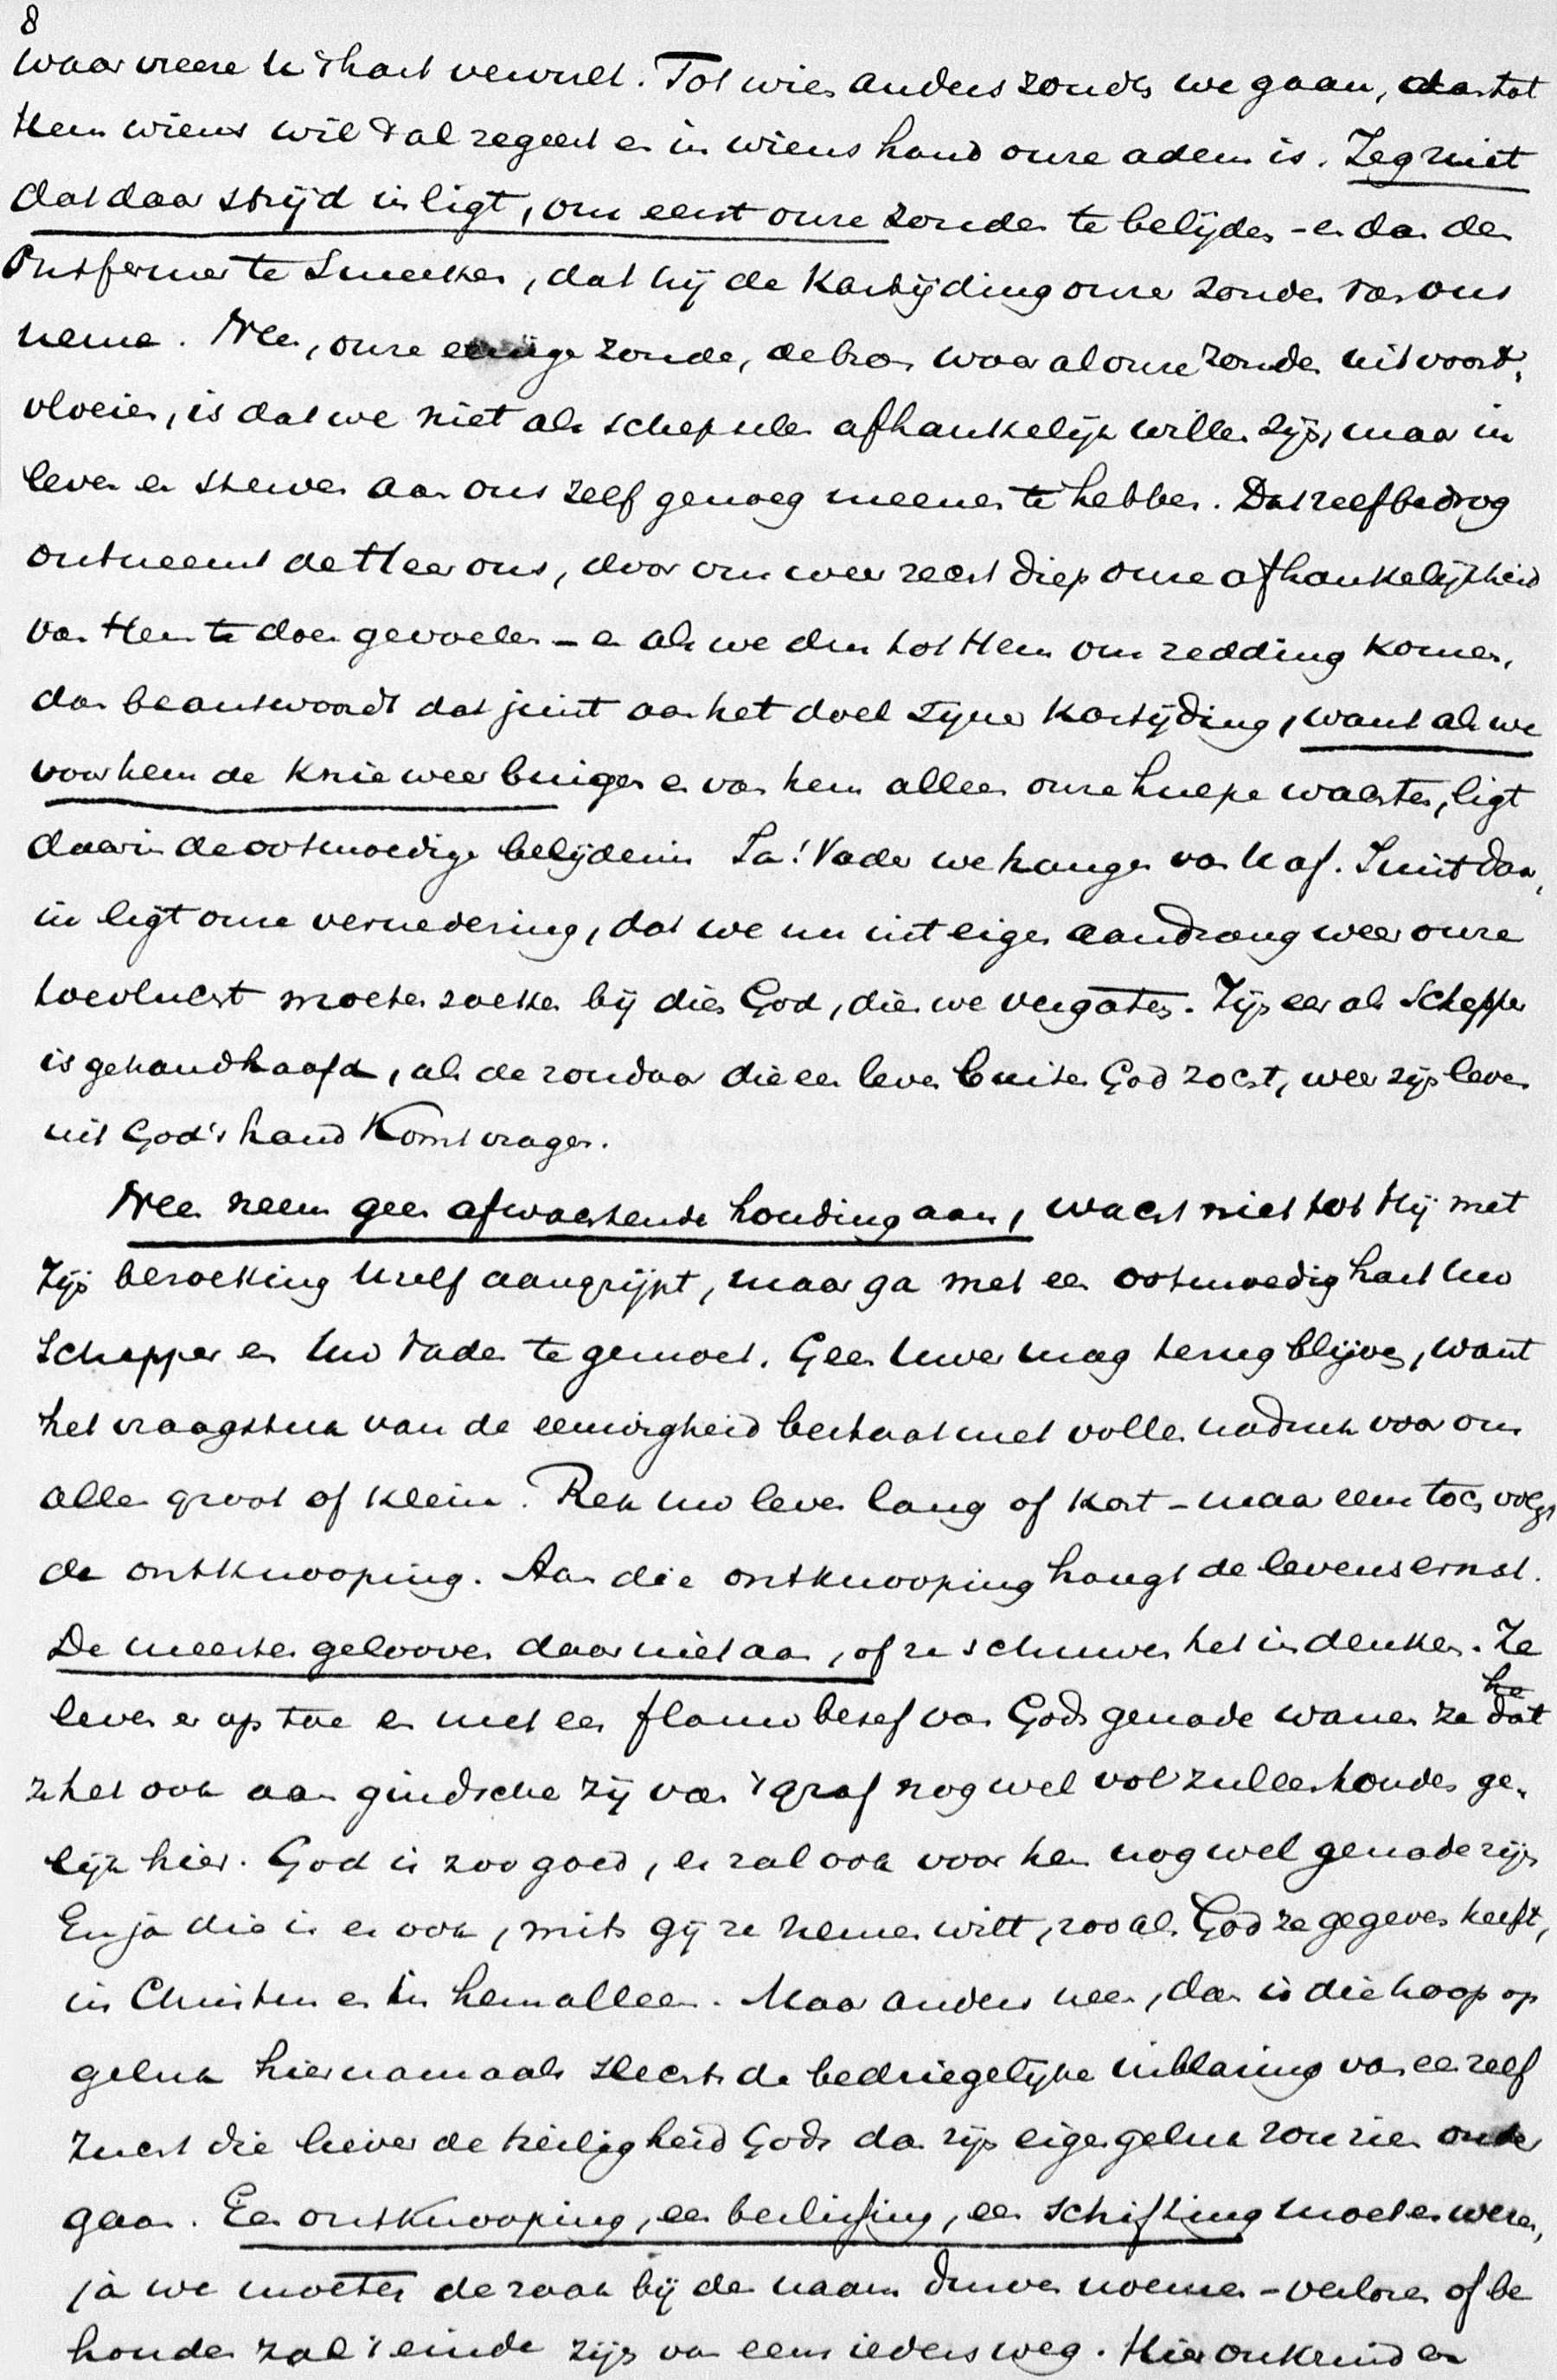 8
waar vreeze u 't hart vervult. Tot wien anders zouden we gaan, dan tot
Hem wiens wil 't al regeert en in wiens hand onze adem is. Zeg niet
dat daar strijd in ligt, om eerst onze zonden te belijden - en dan den
Ontfermer te smeeken, dat hij de kastijding onzer zonden van ons
neme. Neen, onze eenige zonde, de bron waar al onze zonden uit voort-
vloeien, is dat we niet als schepselen afhankelijk willen zijn, maar in
leven en sterven aan ons zelf genoeg meenen te hebben. Dat zelfbedrog
ontneemt de Heer ons, door ons weer recht diep onze afhankelijkheid
van Hem te doen gevoelen - en als we dan tot Hem om redding komen,
dan beantwoordt dat juist aan het doel zijner kastijding, want als we
voor hem de knie weer buigen en van hem alleen onze hulpe wachten, ligt
daarin de ootmoedige belijdenis Ja! Vader we hangen van U af. Juist daar-
in ligt onze vernedering, dat we nu uit eigen aandrang weer onze
toevlucht moeten zoeken bij dien God, dien we vergaten. Zijn eer als Schepper
is gehandhaafd, als de zondaar die een leven buiten God zocht, weer zijn leven
uit God's hand komt vragen.
Neen neem geen afwachtende houding aan, wacht niet tot Hij met
Zijn bezoeking Uzelf aangrijpt, maar ga met een ootmoedig hart Uw
Schepper en Uw Vader te gemoet. Geen Uwer mag terug blijven, want
het vraagstuk van de eeuwigheid bestaat met vollen nadruk voor ons
allen groot of klein. Rek Uw leven lang of kort - maar eens toch volgt
de ontknooping. Aan die ontknooping hangt de levensernst.
De meesten gelooven daar niet aan, of ze schuwen het in denken. Ze
leven er op toe en met een flauw besef van Gods genade wanen ze dat
ze het ook aan gindsche zij van 't graf nog wel vol zullen houden ge-
lijk hier. God is zoo goed, er zal ook voor hen nog wel genade zijn
En ja die is er ook, mits gij ze nemen wilt, zooals God ze gegeven heeft,
in Christus en in hem alleen. Maar anders neen, dan is die hoop op
geluk hiernamaals slechts de bedriegelijke inblazing van een zelf
zucht die liever de heiligheid Gods dan zijn eigen geluk zou zien onder
gaan. Een ontknooping, een beslissing, een schifting moet er wezen,
ja we moeten de zaak bij den naam durven noemen - verloren of be
houden zal 't einde zijn van eens ieders weg. Hier onkruid en